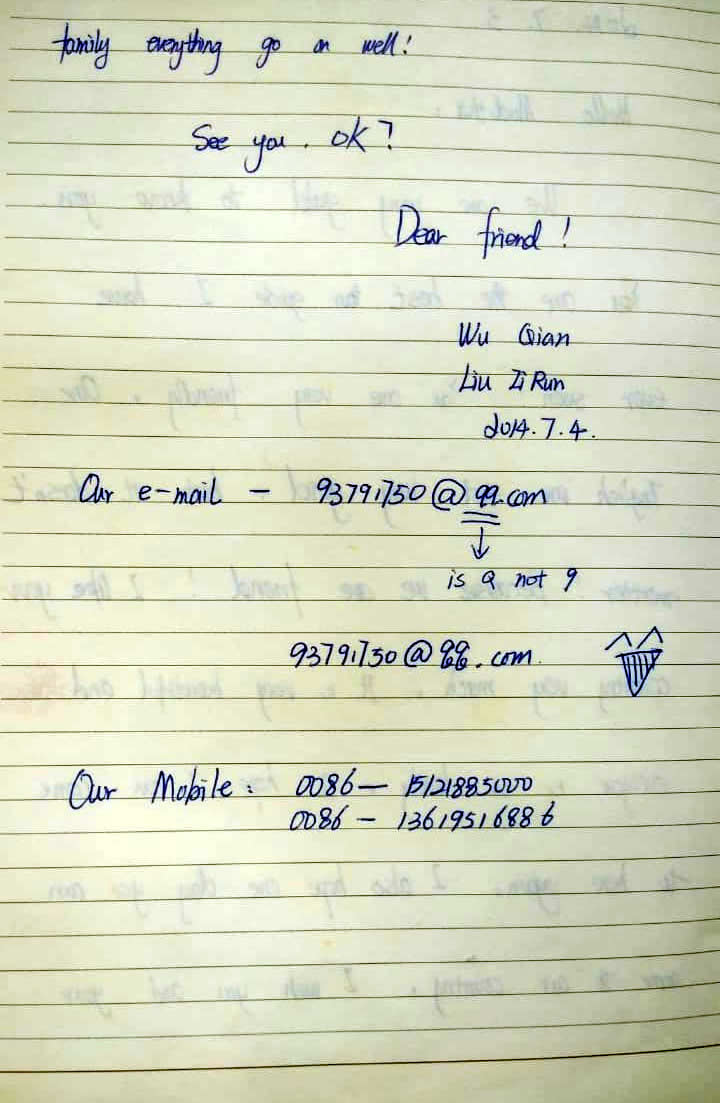 family everything go on well!
See you. ok?
Dear friend!
Wu Qian
Liu Zi Run
2014.7.4.
Our e-mail — 93791750@qq.com
is Q not 9
93791750@qq.com.
Our Mobile: 0086— 15121885000
0086 — 13619516886